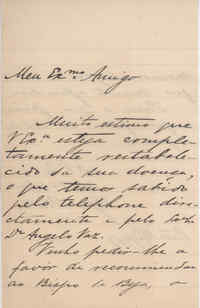 Meu Ex.mo Amigo
Muito estimo que
V Ex.a esteja comple-
tamente restabele-
cido da sua doença,
o que temos sabido
pelo telephone dire-
ctamente e pelo
Dr Angelo Vaz.
Venho pedir-lhe o
favor de recommendar
ao Bispo de Beja, o